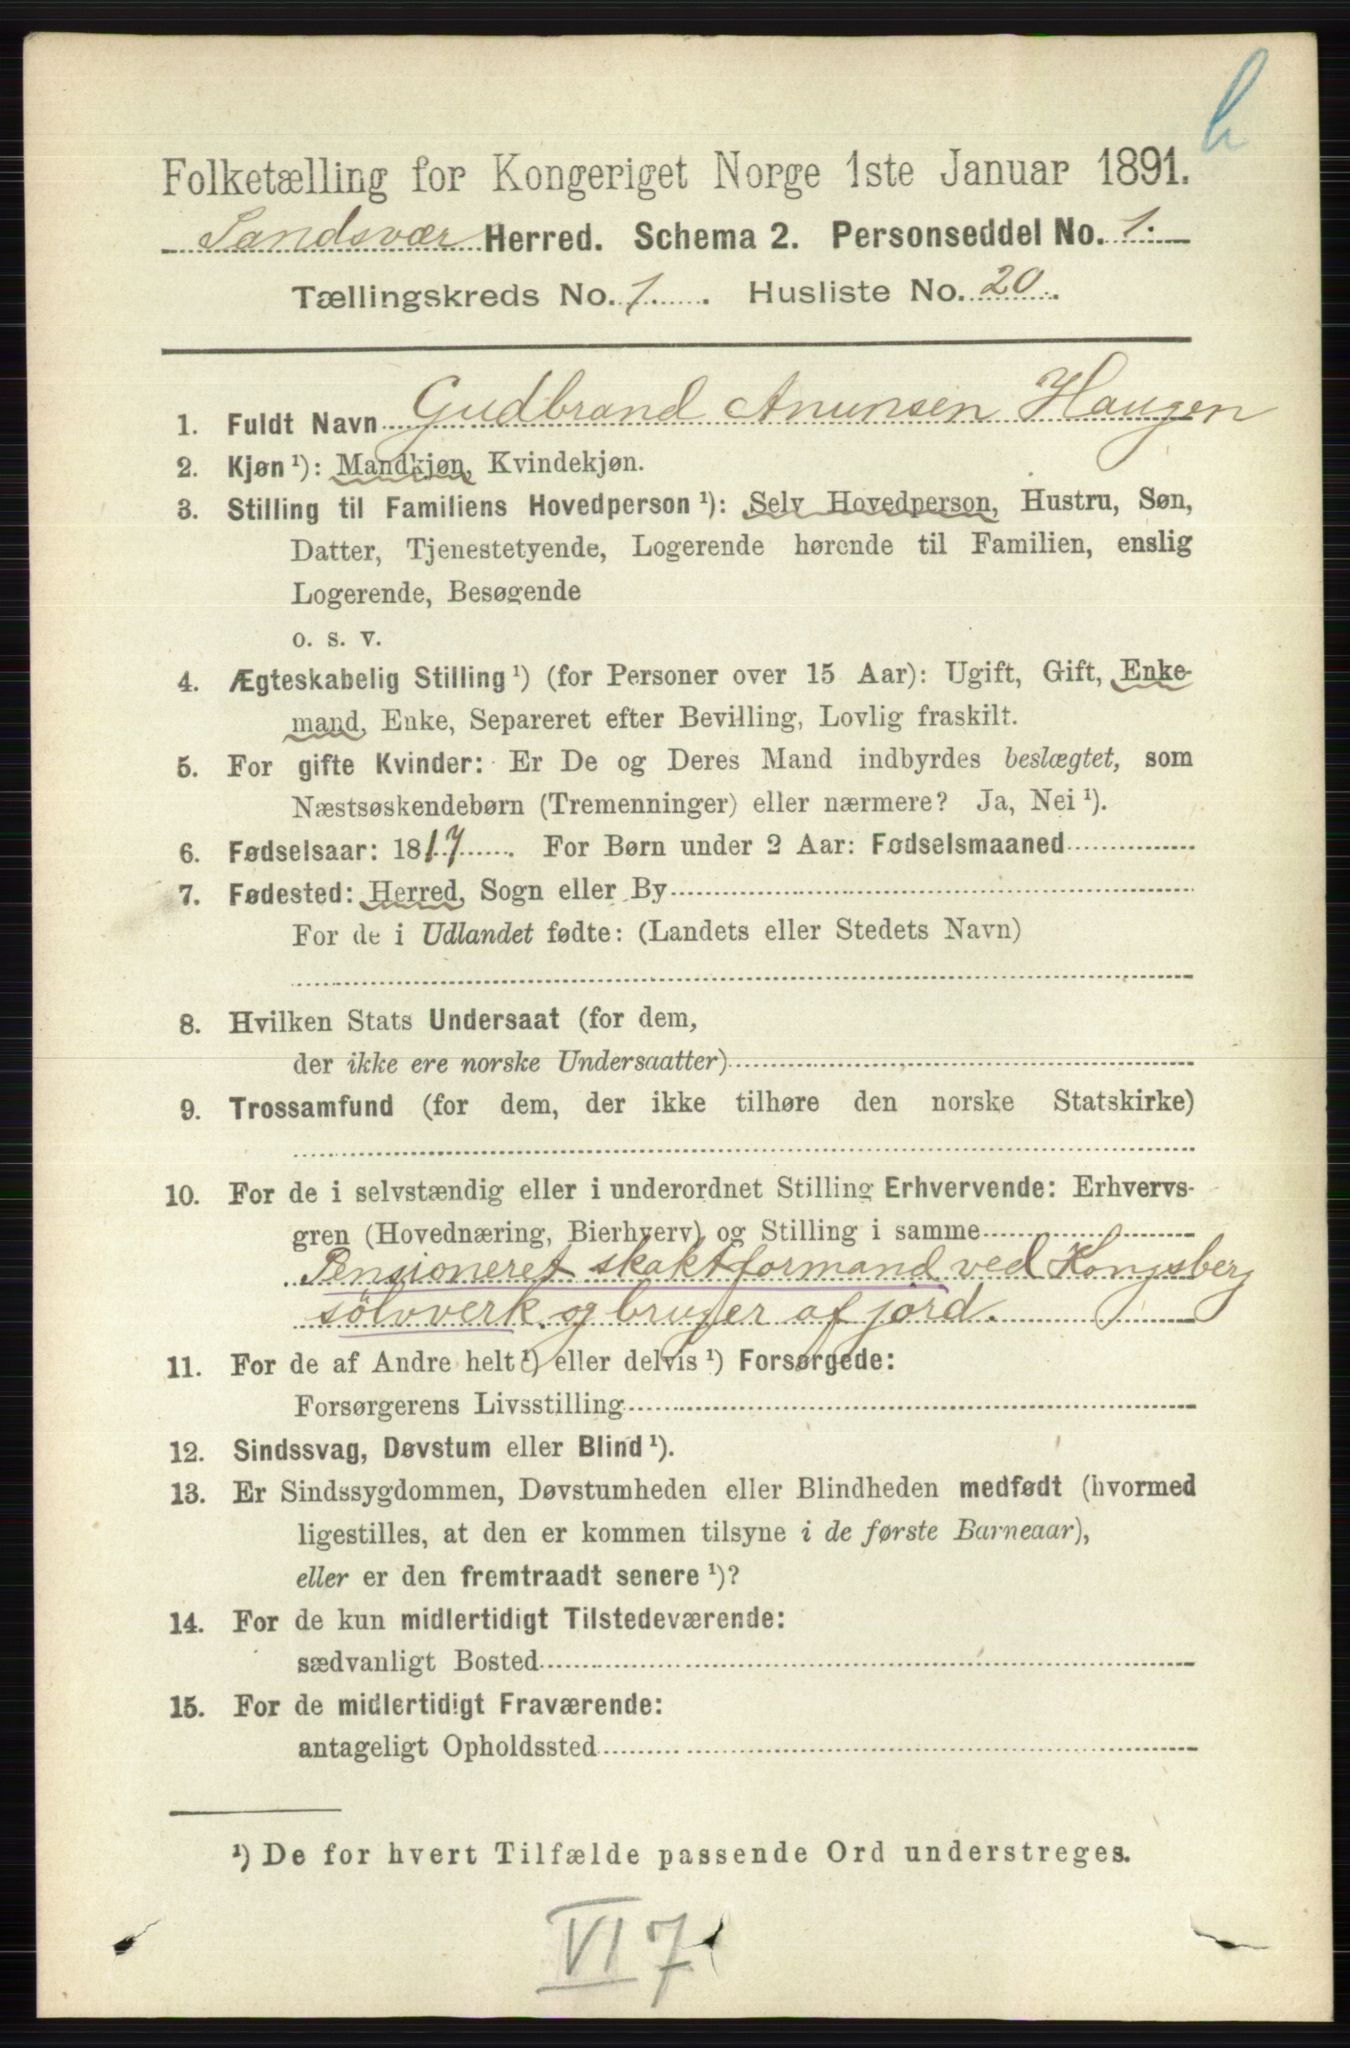 h
Folketælling for Kongeriget Norge 1ste Januar 1891.
Sandsvær Herred. Schema 2. Personseddel No. 1.
Tællingskreds No. 1. Husliste No. 20.
1. Fuldt Navn Gudbrand Anunsen Haugen
2. Kjøn¹): Mandkjøn, Kvindekjøn.
3. Stilling til Familiens Hovedperson¹): Selv Hovedperson, Hustru, Søn,
Datter, Tjenestetyende, Logerende hørende til Familien, enslig
Logerende, Besøgende
o. s. v.
4. Ægteskabelig Stilling¹) (for Personer over 15 Aar): Ugift, Gift, Enke-
mand, Enke, Separeret efter Bevilling, Lovlig fraskilt.
5. For gifte Kvinder: Er De og Deres Mand indbyrdes beslægtet, som
Næstsøskendebørn (Tremenninger) eller nærmere? Ja, Nei¹).
6. Fødselsaar: 1817. For Børn under 2 Aar: Fødselsmaaned
7. Fødested: Herred, Sogn eller By
For de i Udlandet fødte: (Landets eller Stedets Navn)
8. Hvilken Stats Undersaat (for dem,
der ikke ere norske Undersaatter)
9. Trossamfund (for dem, der ikke tilhøre den norske Statskirke)
10. For de i selvstændig eller i underordnet Stilling Erhvervende: Erhvervs-
gren (Hovednæring, Bierhverv) og Stilling i samme
Pensioneret skaktformand ved Kongsberg
sölvverk. og bruger af jord.
11. For de af Andre helt¹) eller delvis¹) Forsørgede:
Forsørgerens Livsstilling
12. Sindssvag, Døvstum eller Blind¹).
13. Er Sindssygdommen, Døvstumheden eller Blindheden medfødt (hvormed
ligestilles, at den er kommen tilsyne i de første Barneaar),
eller er den fremtraadt senere¹)?
14. For de kun midlertidigt Tilstedeværende:
sædvanligt Bosted
15. For de midlertidigt Fraværende:
antageligt Opholdssted
¹) De for hvert Tilfælde passende Ord understreges.
VI 7